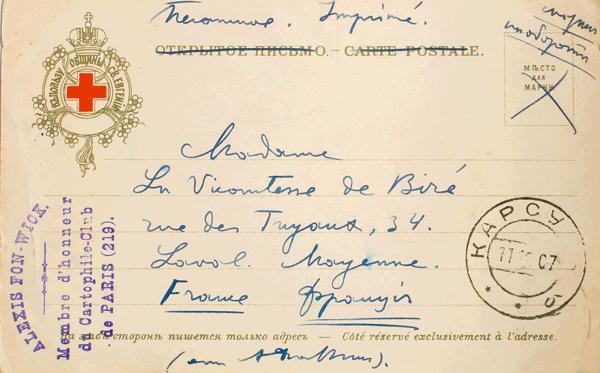 Imprimé.
ОТКРЫТОЕ ПИСЬМО. — CARTE POSTALE.
ВЪ ПОЛЬЗУ ОБЩИНЫ СВ. ЕВГЕНІИ
МѢСТО
ДЛЯ
МАРКИ
Madame
La Vicomtesse de Biré
rue des Tuyaux, 34.
Laval. Mayenne.
France Франція
КАРСУ
07
ALEXIS FON-WICK.
Membre d'honneur
du Cartophile-Club
de PARIS (219).
На этой сторонѣ пишется только адресъ — Côté réservé exclusivement à l'adresse.